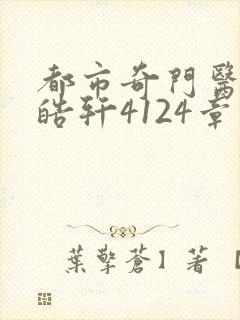 都市奇門醫
皓轩4124章
葉擎蒼】著【